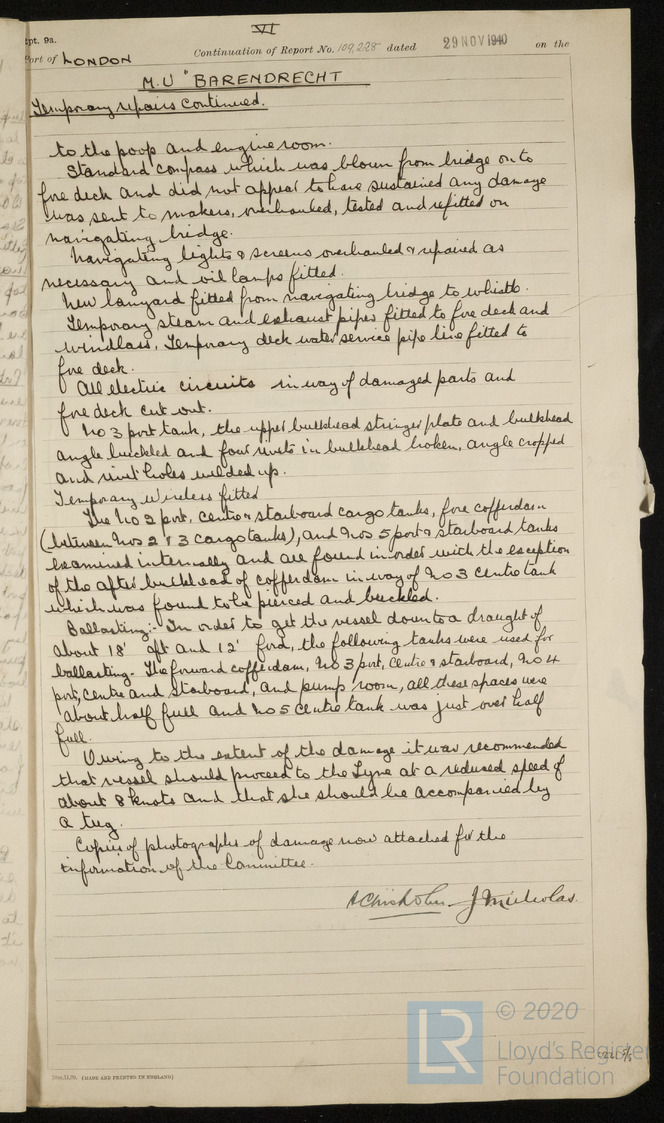 VI
Rpt. 9a.
Port of LONDON
Continuation of Report No. 109,228 dated 29 NOV 1940 on the
M.V "BARENDRECHT
Temporary repairs continued.
to the poop and engine room.
Standard compass which was blown from bridge on to
fore deck and did not appear to have sustained any damage
was sent to makers, overhauled, tested and refitted on
navigating bridge.
Navigating lights & screens overhauled & repaired as
necessary and oil lamps fitted.
New lanyard fitted from navigating bridge to whistle.
Temporary steam and exhaust pipes fitted to fore deck and
windlass, Temporary deck water service pipe line fitted to
fore deck.
All electric circuits in way of damaged parts and
fore deck cut out.
No 3 port tank, the upper bulkhead stringer plate and bulkhead
angle buckled and four rivets in bulkhead broken, angle cropped
and rivet holes welded up.
Temporary wireless fitted
The No 2 port, centre & starboard cargo tanks, fore cofferdam
(between Nos 2 & 3 cargo tanks), and Nos 5 port & starboard tanks
examined internally and all found in order with the exception
of the after bulkhead of cofferdam in way of No 3 centre tank
which was found to be pierced and buckled.
Ballasting:- In order to get the vessel down to a draught of
about 18' aft and 12' ford, the following tanks were used for
ballasting. The forward cofferdam, No 3 port, centre & starboard, No 4
port, centre and starboard, and pump room, all these spaces were
about half full and No 5 centre tank was just over half
full.
Owing to the extent of the damage it was recommended
that vessel should proceed to the Tyne at a reduced speed of
about 8 knots and that she should be accompanied by
a tug.
Copies of photographs of damage now attached for the
information of the Committee.
A Chisholm J Nicholas.
(MADE AND PRINTED IN ENGLAND)
LR © 2020
Lloyd's Register
Foundation